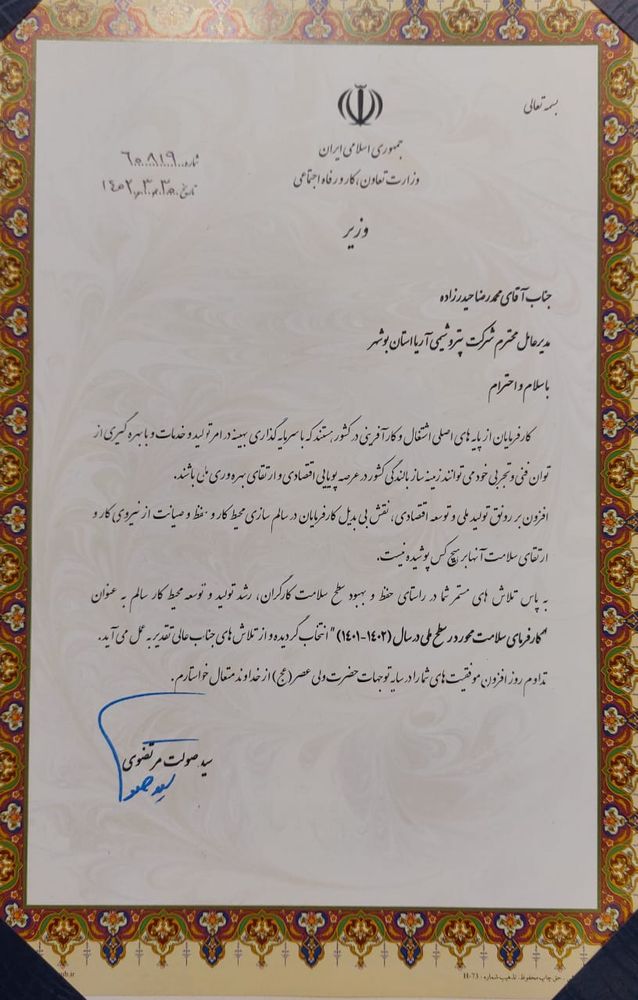 بسمه تعالی
جمهوری اسلامی ایران
وزارت تعاون، کار و رفاه اجتماعی
وزیر
شماره ۶۰۸۱۹
تاریخ ۱۴۰۲.۳.۳۰
جناب آقای محمدرضا حیدرزاده
مدیرعامل محترم شرکت پتروشیمی آریا استان بوشهر
با سلام و احترام
کارفرمایان از پایه های اصلی اشتغال و کارآفرینی در کشور هستند که با سرمایه گذاری بهینه در امر تولید و خدمات و با بهره گیری از
توان فنی و تجربی خود می توانند زمینه ساز بالندگی کشور در عرصه پویایی اقتصادی و ارتقای بهره وری ملی باشند.
افزون بر رونق تولید ملی و توسعه اقتصادی، نقش بی بدیل کارفرمایان در سالم سازی محیط کار و حفظ و صیانت از نیروی کار و
ارتقای سلامت آنها بر هیچ کس پوشیده نیست.
به پاس تلاش های مستمر شما در راستای حفظ و بهبود سطح سلامت کارگران، رشد تولید و توسعه محیط کار سالم به عنوان
"کارفرمای سلامت محور در سطح ملی در سال (۱۴۰۲-۱۴۰۱)" انتخاب گردیده و از تلاش های جناب عالی تقدیر به عمل می آید.
تداوم روز افزون موفقیت های شما را در سایه توجهات حضرت ولی عصر (عج) از خداوند متعال خواستارم.
سید صولت مرتضوی
حق چاپ محفوظ. تذهیب شماره: H-73